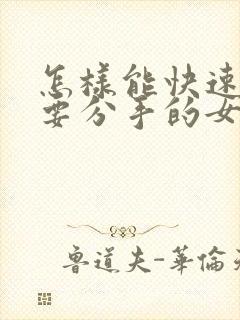 怎樣能快速
要分手的女
魯道夫-華倫